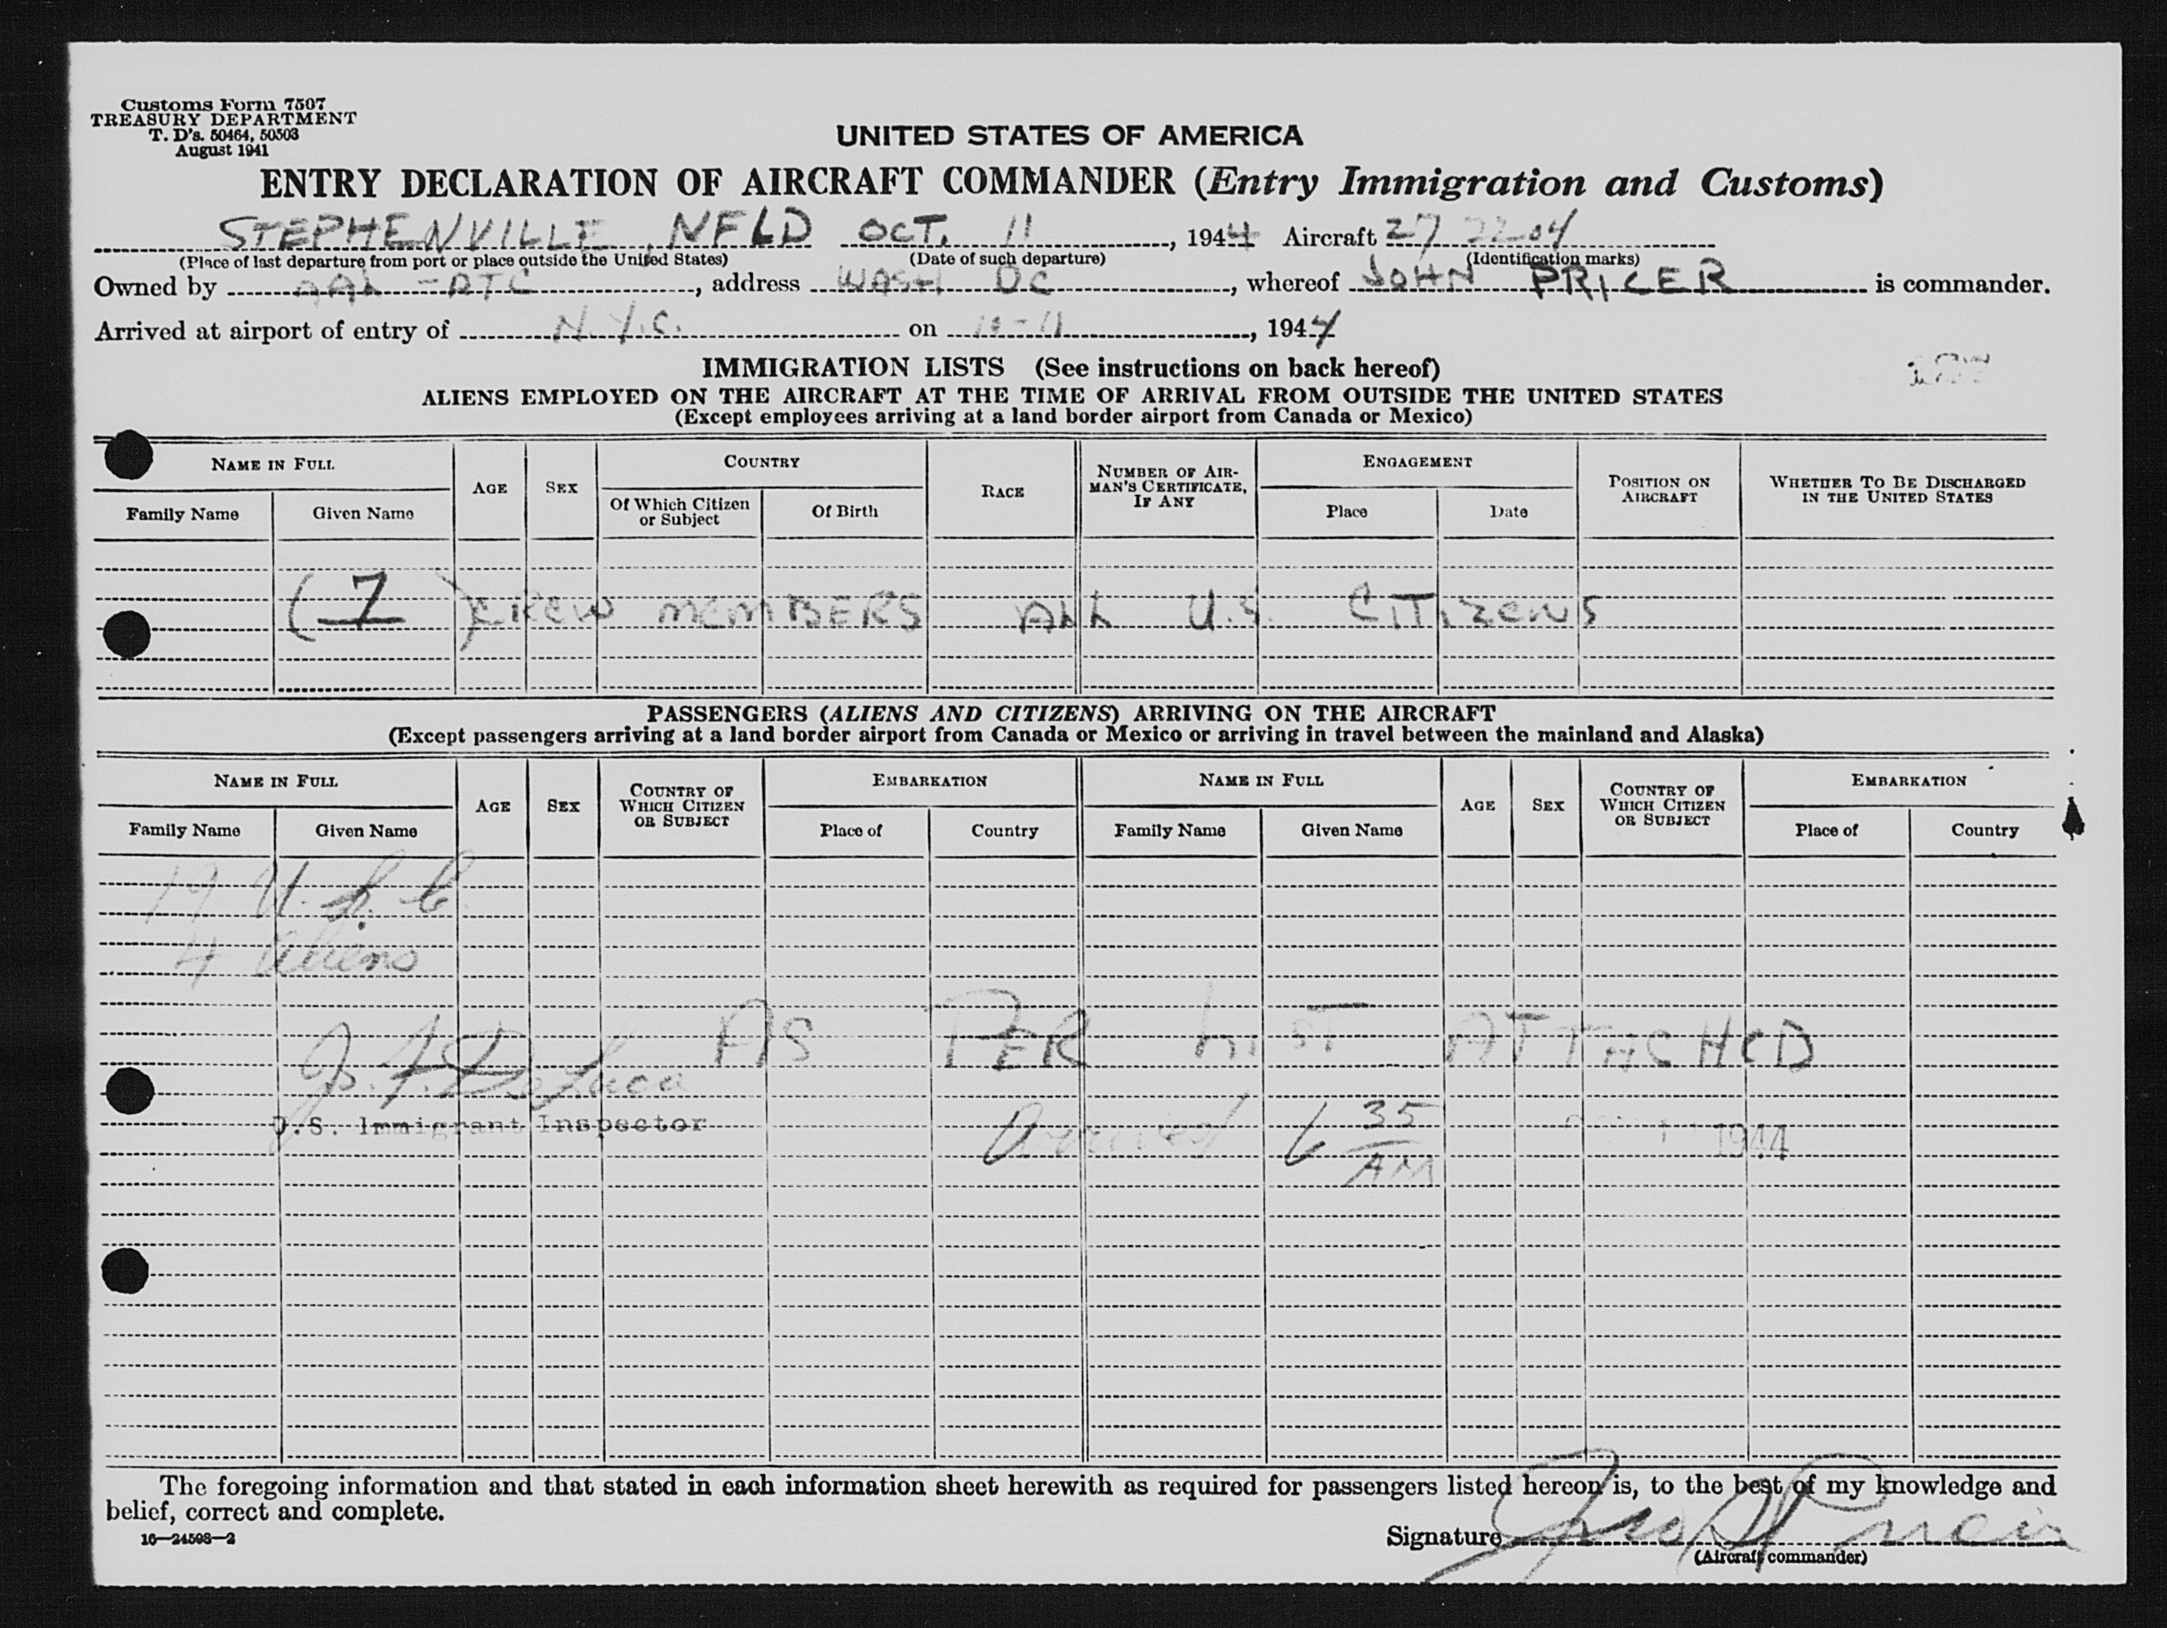 Customs Form 7507
TREASURY DEPARTMENT
T. D's. 50464, 50503
August 1941
UNITED STATES OF AMERICA
ENTRY DECLARATION OF AIRCRAFT COMMANDER (Entry Immigration and Customs)
STEPHENVILLE, NFLD OCT. 11, 1944 Aircraft 27 2204
(Place of last departure from port or place outside the United States) (Date of such departure) (Identification marks)
Owned by AAL - ATC, address WASH DC, whereof JOHN PRICER is commander.
Arrived at airport of entry of N.Y.C. on 10-11, 1944
IMMIGRATION LISTS (See instructions on back hereof)
ALIENS EMPLOYED ON THE AIRCRAFT AT THE TIME OF ARRIVAL FROM OUTSIDE THE UNITED STATES
(Except employees arriving at a land border airport from Canada or Mexico)
NAME IN FULL AGE SEX COUNTRY RACE NUMBER OF AIRMAN'S CERTIFICATE, IF ANY ENGAGEMENT POSITION ON AIRCRAFT WHETHER TO BE DISCHARGED IN THE UNITED STATES
Family Name Given Name Of Which Citizen or Subject Of Birth Place Date
(7) CREW MEMBERS ALL U.S. CITIZENS
PASSENGERS (ALIENS AND CITIZENS) ARRIVING ON THE AIRCRAFT
(Except passengers arriving at a land border airport from Canada or Mexico or arriving in travel between the mainland and Alaska)
NAME IN FULL AGE SEX COUNTRY OF WHICH CITIZEN OR SUBJECT EMBARKATION NAME IN FULL AGE SEX COUNTRY OF WHICH CITIZEN OR SUBJECT EMBARKATION
Family Name Given Name Place of Country Family Name Given Name Place of Country
U.S.C.
4 Aliens
AS PER LIST ATTACHED
J. F. DeLuca
U.S. Immigrant Inspector
Arrived 6 35 AM 1944
The foregoing information and that stated in each information sheet herewith as required for passengers listed hereon is, to the best of my knowledge and
belief, correct and complete.
16—24598-2
Signature
(Aircraft commander)